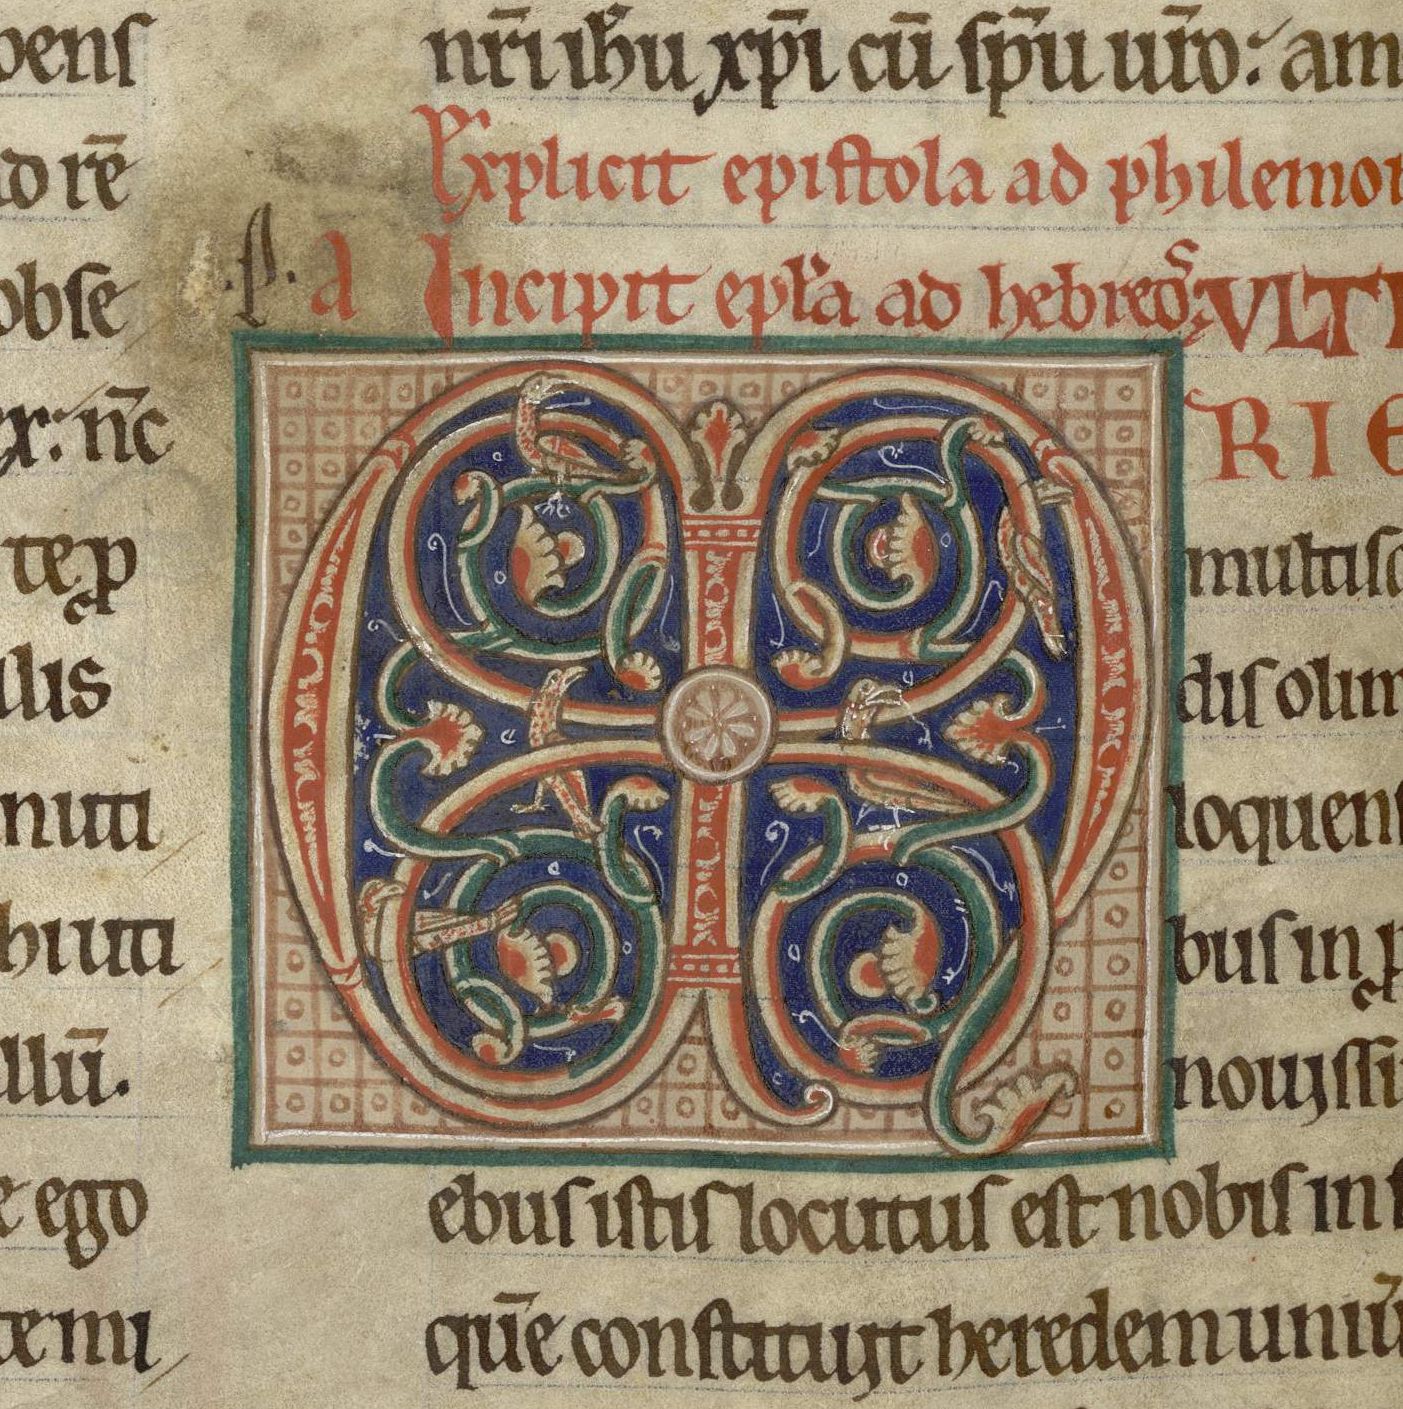 bens
ad rē
obse
ex: nc̄
tēp̱
llis
nuta
hiuta
llū.
e ego
te mi
nr̄i ih̄u xp̄i cū sp̄u ur̄o: am
Explicit epistola ad philemon
.P. a Incipit epl̓a ad hebreos
M
VLTI
RIE
multisq
dis olim
loquens
bus in p
nouissi
ebus istis locutus est nobis in f
quē constituit heredem uniū